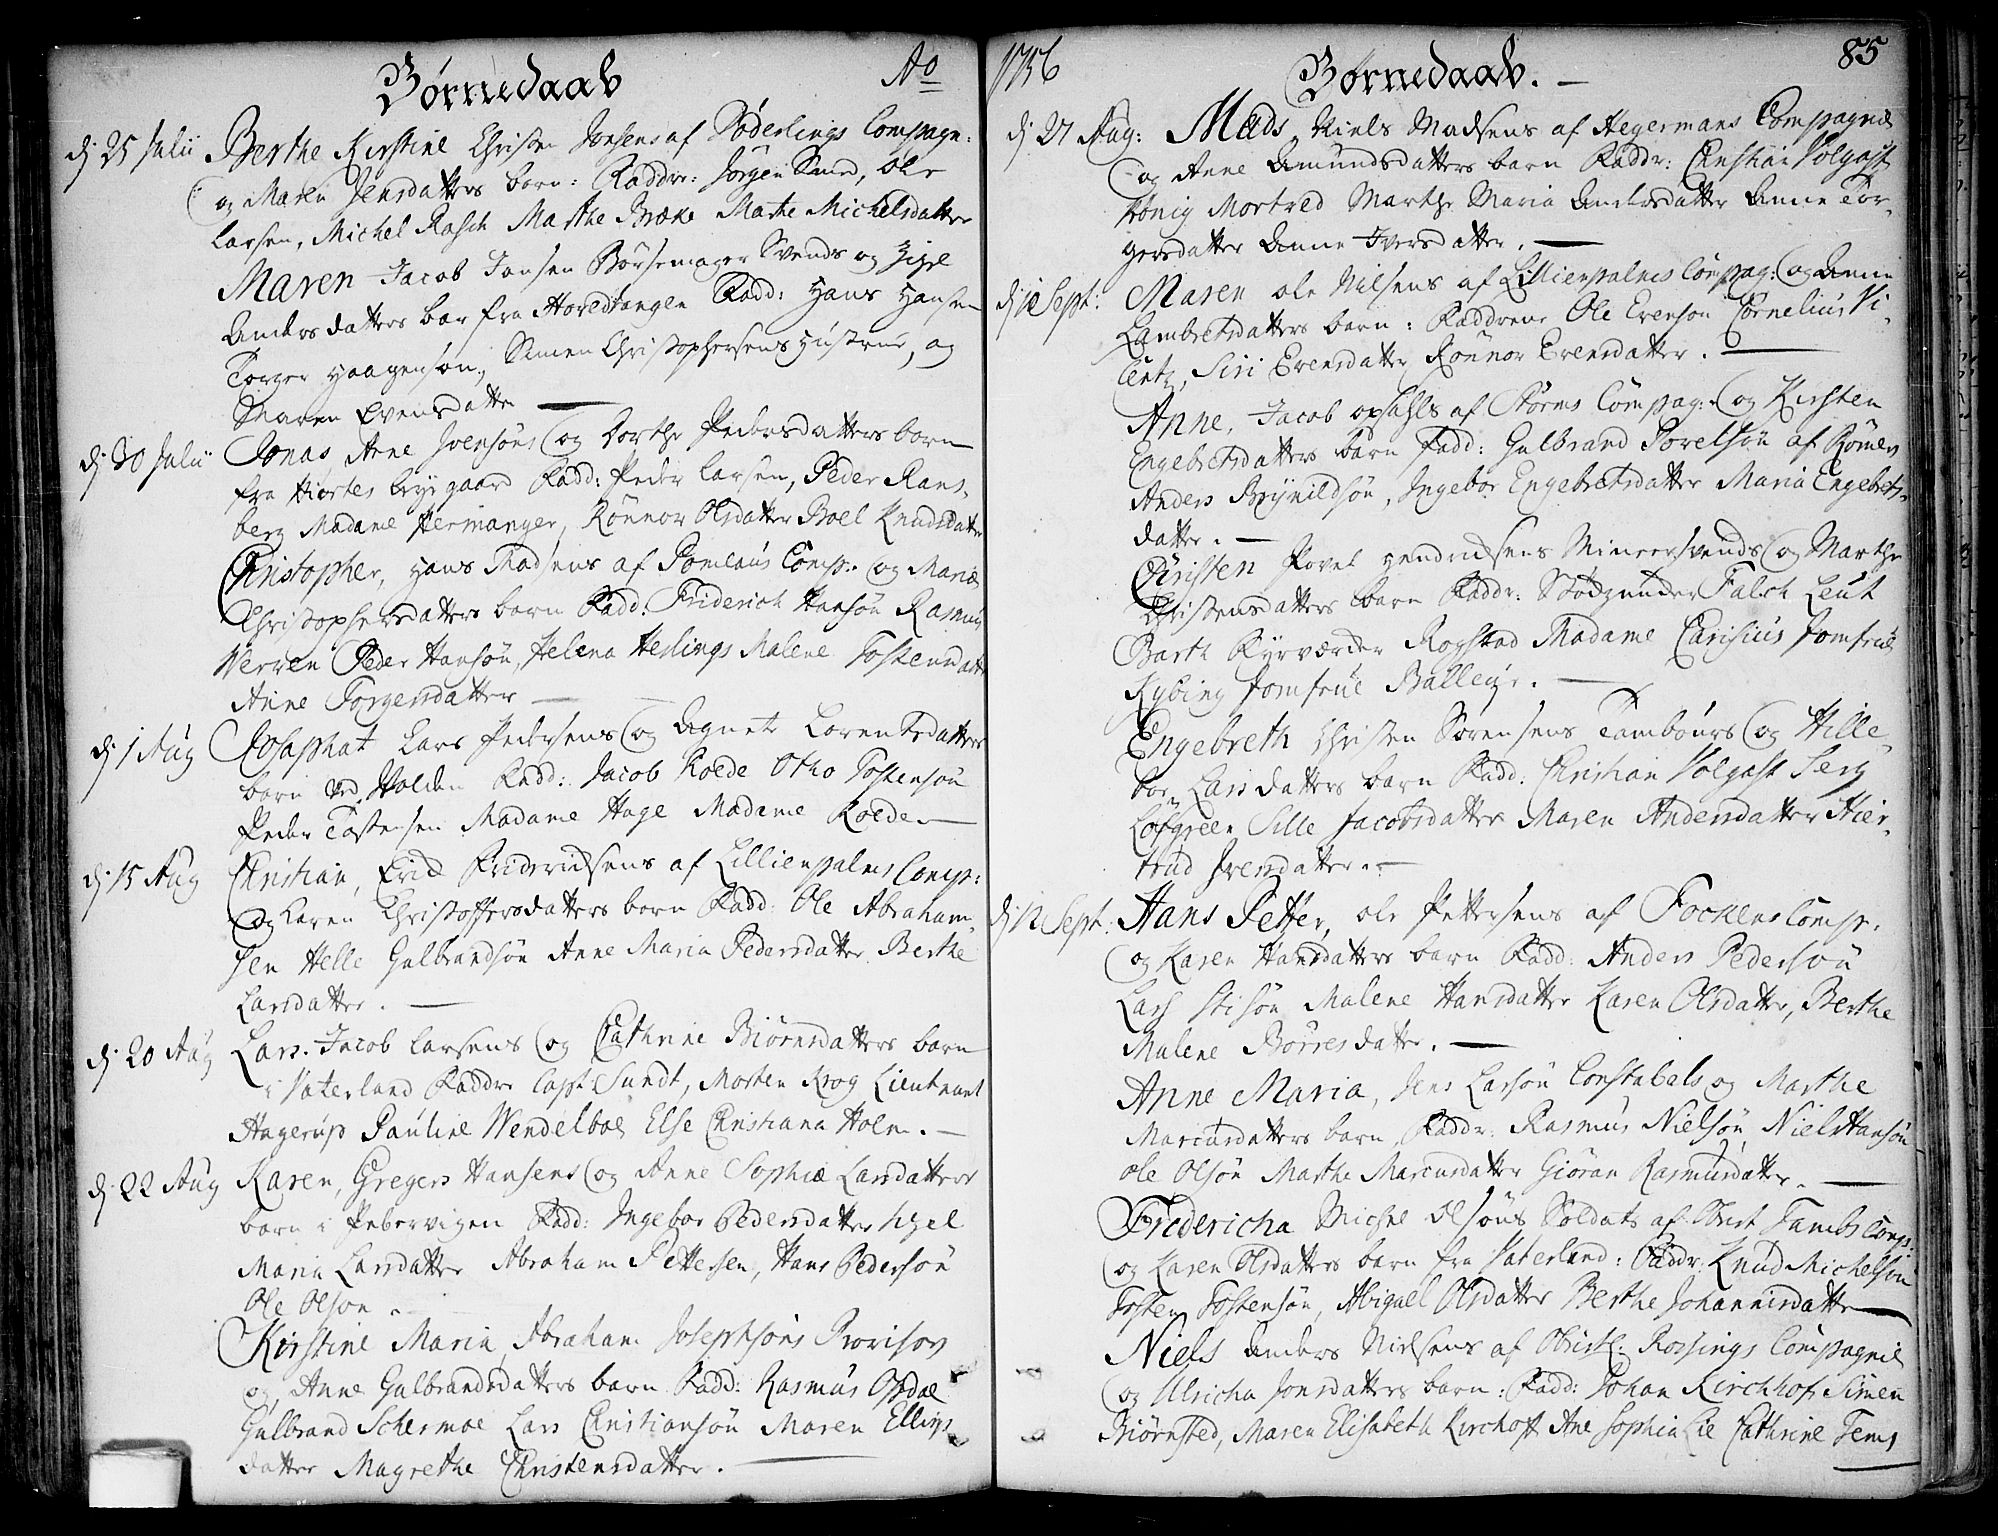 Børnedaab Ao
dj 25 Julii Berthe Kirstine Christen Jensens af Søderlings Compagn:
og Maren Jensdatters barn: Faddre: Jørgen Smed, Ole
Larsen, Michel Rasch Marthe Bræke Marte Michelsdatter
Maren Jacob Jansen Børsemager Svends og Zizel
Andersdatters bar fra Hovedtangen Fadd: Hans Hansen
Torger Haagensøn, Simen Christophersens Hustrue, og
Maren Evensdatter
dj 30 Julii Jonas Arne Svensøns og Dorthe Pedersdatters barn
fra Hiortes Lykgaard Fadd: Peder Larsen, Peder Rans-
berg Madame Hermanger, Rønnov Olsdatter Boel Knudsdatter
Christopher, Hans Madsens af Pomlaus Comp: og Mariæ
Christophersdatters barn Fadd: Friderich Hansøn Rasmus
Werren Peder Hansøn, Helena Heslings Malene Tostensdatter
Anne Torgersdatter
dj 1 Aug Josaphat Lars Pedersens og Agnete Lorentzdatters
barn ved Holden Fadd: Jacob Koede Otho Tostensøn
Peder Tostensen Madame Hage Madame Koede
dj 15 Aug Christian, Erich Friderichsens af Lillienpalms Comp:
og Karen Christoffersdatters barn Fadd: Ole Abraham-
sen Helle Gulbrandsøn Anne Maria Pedersdatter Berthe
Larsdatter.
dj 20 Aug Lars. Jacob Larsens og Cathrine Biørnsdatters barn
i Vaterland Faddre Capt: Sundt, Morten Krog Lieutnant
Hagerup Pauline Wendelboe Else Christiana Holm.
dj 22 Aug Karen, Gregers Hansens og Anne Sophiæ Larsdatters
barn i Pebervigen Fadd: Ingebor Pedersdatter Zizel
Maria Larsdatter Abraham Pettersen, Hans Pedersøn
Ole Olson.
Kirstine Maria, Abraham Josephsøns Provisor
og Anne Gulbrandsdatters barn Fadd: Rasmus Opdal
Gulbrand Schermoe Lars Christiansøn Maren Ellings
datter Magrethe Christensdatter.
1756 Børnedaab. 85
dj 27 Aug: Mads, Niels Madsens af Hegermans Compagnie
og Anne Amundsdatters barn Faddr: Christian Volgast
König Mortved Marthe Maria Andersdatter Anne Tor-
gersdatter Anne Iversdatter.
dj 10 Sept: Maren Ole Nilsens af Lillienpalms Compag: og Anne
Lambretsdatters barn: Faddrene Ole Evensøn Cornelius Vi-
centz, Siri Evensdatter Rønnov Evensdatter.
Anne, Jacob Opsahls af Storms Compag: og Kirsten
Engebretsdatters barn Fadd: Gulbrand Povelsøn af Rømen
Anders Brynildsøn, Ingebor Engebretsdatter Maria Engebrets-
datter.
Christen Povel Hendrichsens Mineersvends og Marthe
Christensdatters barn Faddr: Stødzunder Falch Leut
Barth Fyrværder Rogstad Madame Carisius Jomfrue
Kybing Jomfrue Balleur.
Engebreth Christen Sørensens Tambours og Hille-
bor Larsdatters barn Fadd: Christian Volgast Serg
Löfgreen Sille Jacobsdatter Maren Andersdatter Hier-
trud Iversdatter.
dj 12 Sept: Hans Petter, Ole Pettersens af Fockens Comp.
og Karen Hansdatters barn Fadd: Anders Pedersøn
Lars Stisøn Malene Hansdatter Karen Olsdatter, Berthe
Malene Børresdatter.
Anne Maria, Jens Larsøn Constabels og Marthe
Marcusdatters barn, Faddr: Rasmus Nielsøn, Niels Hansøn
Ole Olsøn Marthe Marcusdatter Giøran Rasmusdatter.
Fredericha Michel Olsøns Soldats af Obrist Tambs Comp:
og Karen Olsdatters barn fra Vaterland: Faddr: Knud Michelsøn
Tosten Tostensøn, Abigael Olsdatter Berthe Johannisdatter
Niels Anders Nielsens af Obristl: Rossings Compagnie
og Ulricha Jonsdatters barn: Fadd: Johan Kirchhof Simen
Biørnsted, Maren Elisabeth Kirchoff Ane Sophia Lie Cathrine Tems